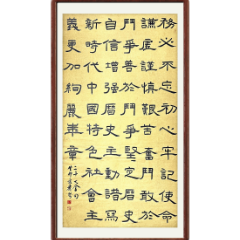 務必不忘初心牢記使命
謙虛謹慎艱苦奮鬥敢於
鬥爭善於鬥爭堅定歷史
自信增强歷史主動譜寫
新時代中國特色社會主
義更加絢麗華章